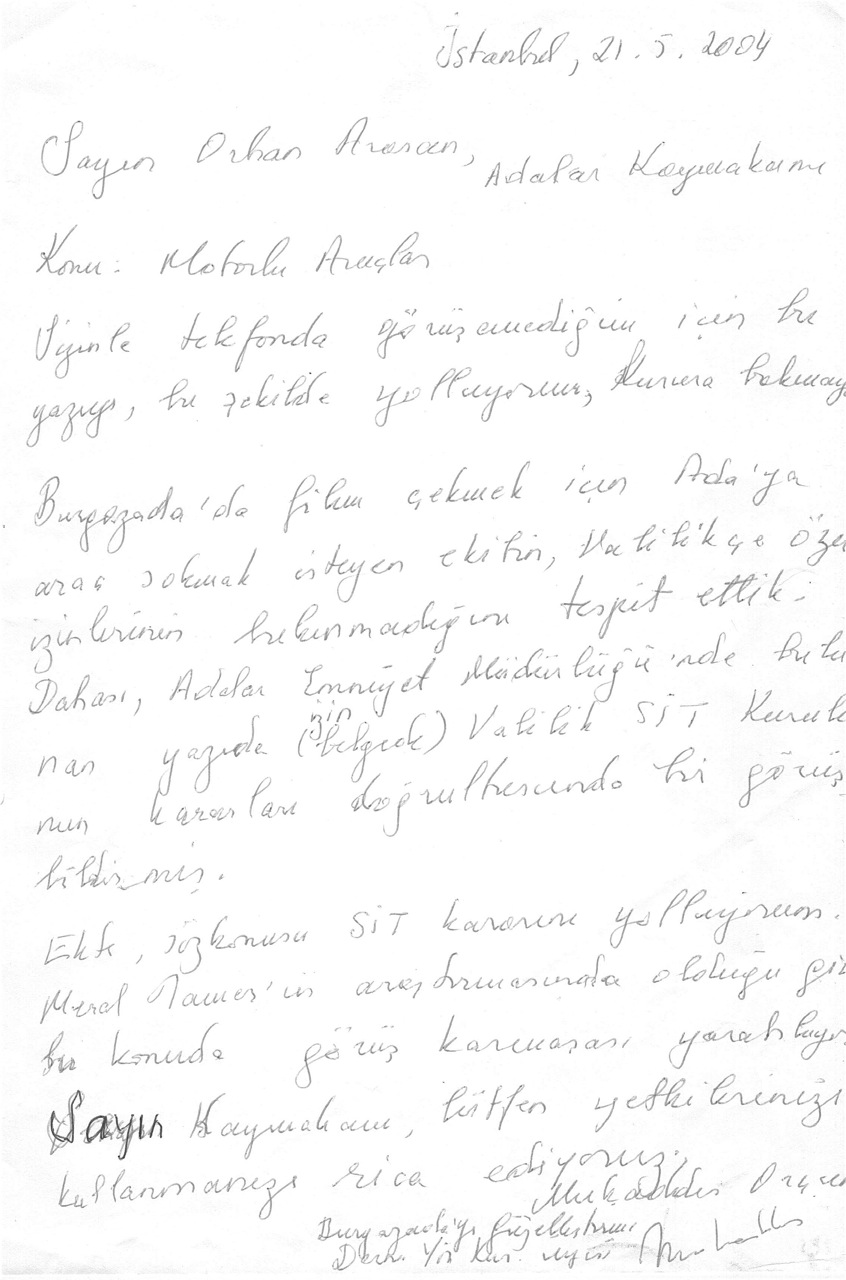 İstanbul, 21.5.2004
Sayın Orhan
Adalar Kaymakamı
Konu: Motorlu Araçlar
Sizinle telefonda görüşemediğim için bu
yazıyı, bu şekilde yolluyorum, Kusura bakmay
Burgazada'da film çekmek için Ada'ya
araç sokmak isteyen ekibin, Valilikçe öze
izinlerinin bulunmadığını tespit ettik.
Dahası, Adalar Emniyet Müdürlüğü'nde bulu
izin
nan yazıda (belgede) Valilik SİT Kurulu
nun kararları doğrultusunda bir görüş
bildirmiş.
Ekte, sözkonusu SİT kararını yolluyorum.
Meral Tamer'in araştırmasında olduğu gib
bu konuda görüş karmaşası yaratılıyor
Sayın Kaymakam, lütfen yetkilerinizi
kullanmanızı rica ediyoruz.
Mukaddes
Burgazada'yı Güzelleştirme
Dern. Yön. Kur. üyesi